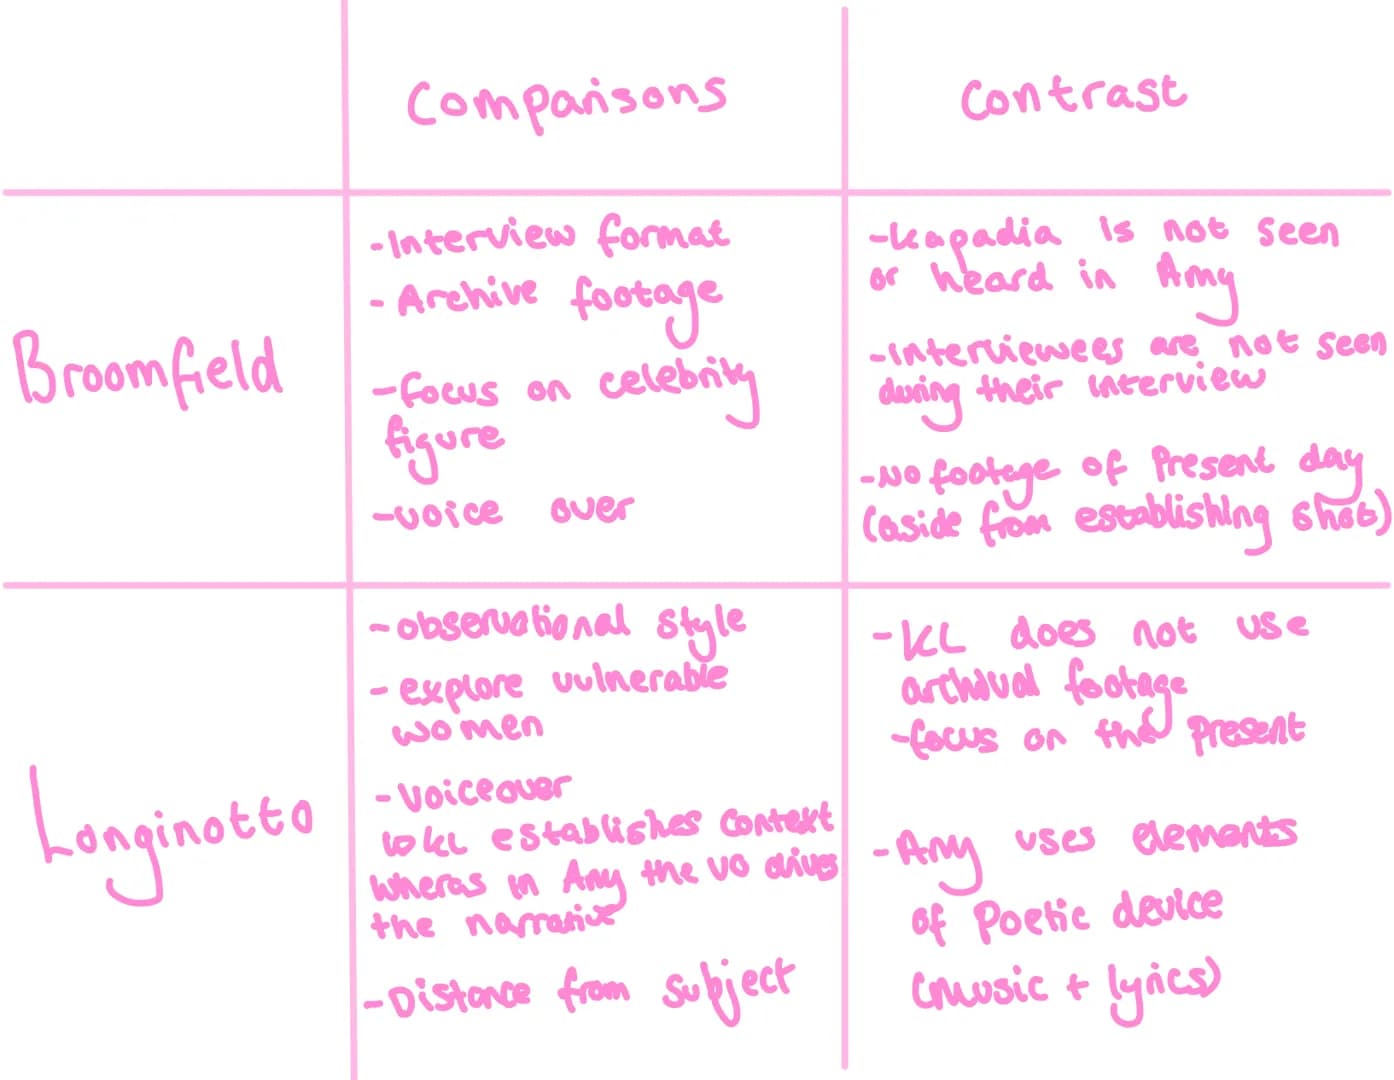 Comparisons
Contrast
Broomfield
-Interview format
- Archive footage
-focus on celebrity
figure
-voice over
-Kapadia is not seen
or heard in Amy
-Interviewees are not seen
during their interview
-No footage of Present day
(aside from establishing shot)
Longinotto
-observational style
-explore vulnerable
women
-Voiceover
↳KL establishes context
wheras in Amy the VO drives
the narrative
-Distance from subject
-KL does not use
archival footage
-focus on the present
-Amy uses elements
of Poetic device
(music + lyrics)